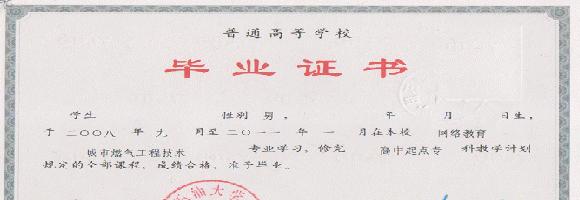 普通高等学校
毕业证书
学生 性别 男， 年 月 日生，
于二〇〇八 年 九 月至二〇一一 年 一 月在本校 网络教育
城市燃气工程技术 专业学习，修完 高中起点专 科教学计划
规定的全部课程，成绩合格，准予毕业。
油大学